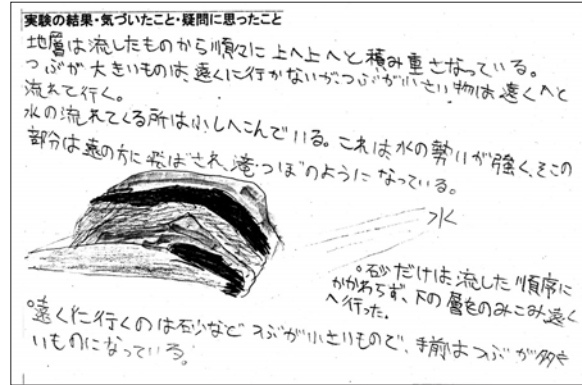 実験の結果・気づいたこと・疑問に思ったこと
地層は流したものから順々に上へ上へと積み重さなっている。
つぶが大きいものは、遠くに行かないが、つぶが小さい物は遠くへと
流れて行く。
水の流れてくる所は少しへこんでいる。これは水の勢いが強く、そこの
部分は遠の方に飛ばされ、滝つぼのようになっている。
水
○砂だけは流した順序に
かかわらず、下の層をのみこみ遠く
へ行った。
○遠くに行くのは砂など つぶが小さいもので、手前はつぶが大き
いものになっている。